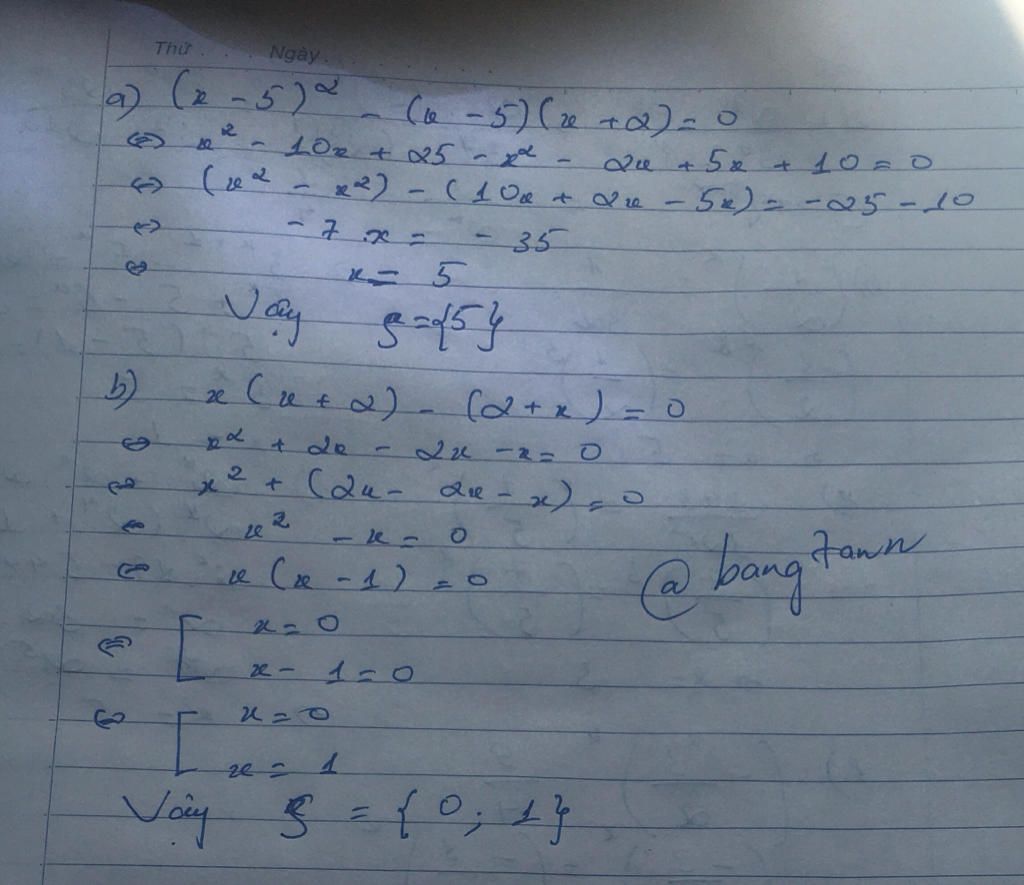 Thứ . . . . Ngày . . . . . . . .
a) (x - 5)² - (x - 5)(x + 2) = 0
⇔ x² - 10x + 25 - x² - 2x + 5x + 10 = 0
⇔ (x² - x²) - (10x + 2x - 5x) = -25 - 10
⇔ - 7 .x = - 35
⇔ x = 5
Vậy S = {5}
b) x (x + 2) - (2 + x) = 0
⇔ x² + 2x - 2x - x = 0
⇔ x² + (2x - 2x - x) = 0
⇔ x² - x = 0
⇔ x (x - 1) = 0
@ bang7ann
⇔ [ x = 0
x - 1 = 0
⇔ [ x = 0
x = 1
Vậy S = { 0; 1}